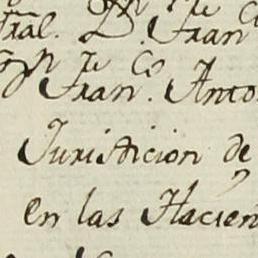 tral. D.n Fran.co
D.n Fran.co Anto
Jurisdicion de
en las Hacien